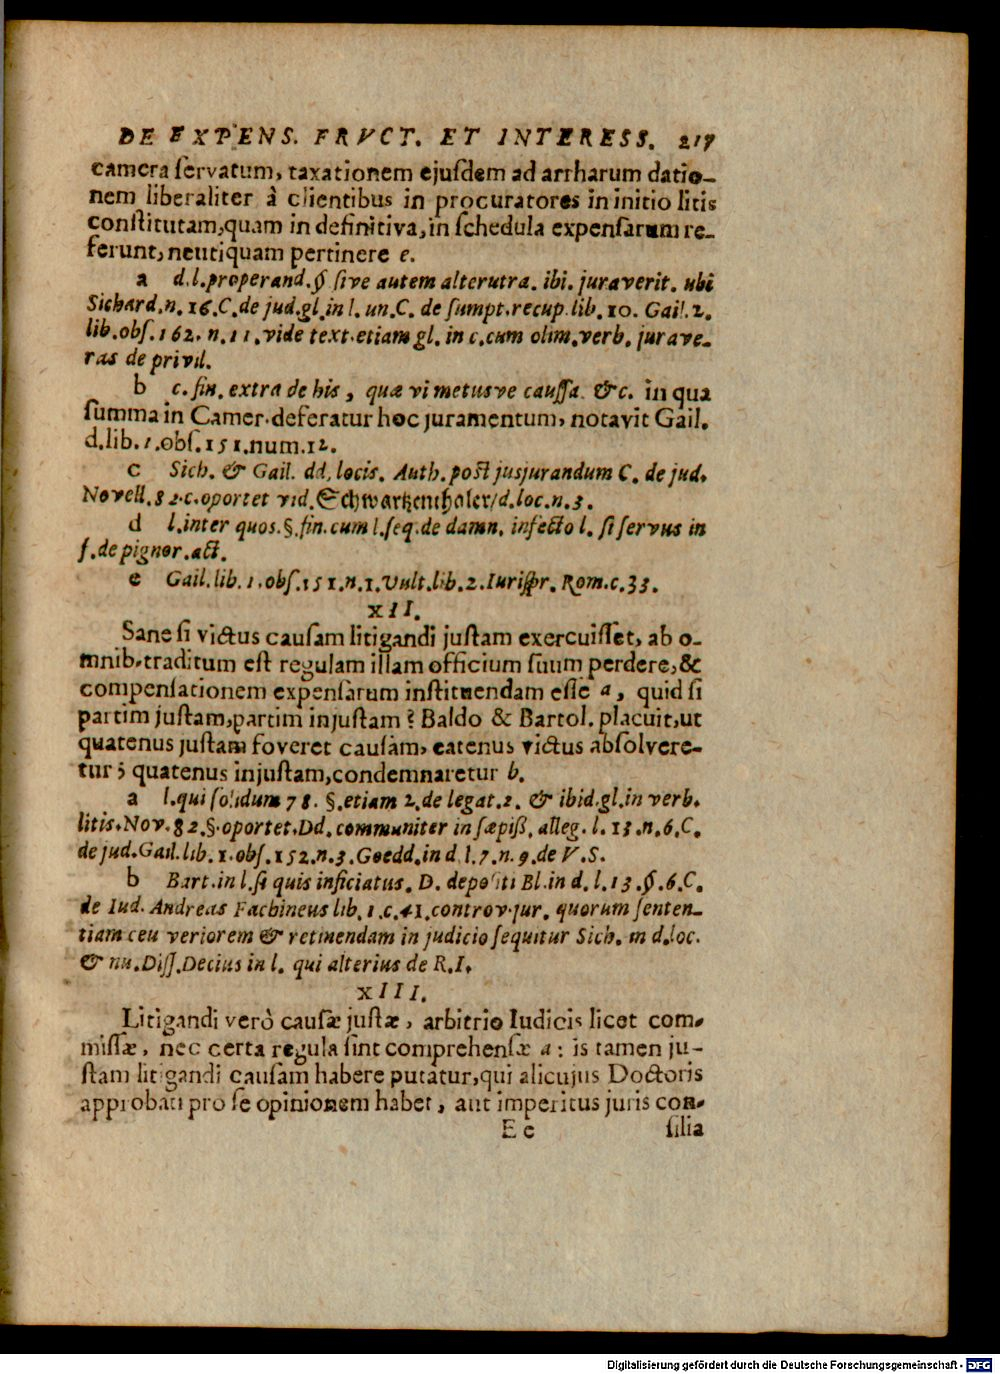 DE EXPENS. FRVCT. ET INTERESS. 217
camera ſervatum, taxationem ejuſdem ad arrharum datio-
nem liberaliter â clientibus in procuratores in initio litis
conſtitutam, quam in definitiva, in ſchedula expenſarum re-
ferunt, neutiquam pertinere e.
a d.l.properand.§ ſive autem alterutra. ibi. juraverit. ubi
Sichard.n. 16.C.de jud.gl.in l. un.C. de ſumpt.recup lib. 10. Gail.2.
lib.obſ.162. n.11.vide text.etiam gl. in c.cum olim.verb. jurave-
ras de privil.
b c.fin. extra de his, quæ vi metusve cauſſa. &c. in qua
ſumma in Camer.deferatur hoc juramentum, notavit Gail.
d.lib.1.obſ.151.num.12.
c Sich. & Gail. dd. locis. Auth.poſt jusjurandum C. de jud.
Novell.82.c.oportet vid.Schwartzenthaler/d.loc.n.3.
d l.inter quos.§.fin.cum l.ſeq.de damn. infecto l. ſi ſervus in
f.de pignor.act.
e Gail.lib.1.obſ.151.n.1.Vult.lib.2.Iuriſpr. Rom.c.33.
XII.
Sane ſi victus cauſam litigandi juſtam exercuiſſet, ab o-
mnib.traditum eſt regulam illam officium ſuum perdere, &
compenſationem expenſarum inſtituendam eſſe a, quid ſi
partim juſtam, partim injuſtam? Baldo & Bartol. placuit, ut
quatenus juſtam foveret cauſam, eatenus victus abſolvere-
tur; quatenus injuſtam, condemnaretur b.
a l.qui ſolidum 78. §.etiam 2.de legat.2. & ibid.gl.in verb.
litis.Nov.82.§.oportet.Dd. communiter in ſæpiß. alleg. l. 13.n.6.C.
de jud.Gail.lib. 1.obſ.152.n.3.Goedd.in d.l.7.n.9.de V.S.
b Bart.in l.ſi quis inficiatus. D. depoſiti Bl.in d. l.13.§.6.C.
de Iud. Andreas Fachineus lib.1.c.41.controv.jur. quorum ſenten-
tiam ceu veriorem & retinendam in judicio ſequitur Sich. in d.loc.
& nu. Diſſ.Decius in l. qui alterius de R.I.
XIII.
Litigandi verò cauſæ juſtæ, arbitrio Iudicis licet com-
miſſæ, nec certa regula ſint comprehenſæ a: is tamen ju-
ſtam litigandi cauſam habere putatur, qui alicujus Doctoris
approbati pro ſe opinionem habet, aut imperitus juris con-
E e ſilia
Digitalisierung gefördert durch die Deutsche Forschungsgemeinschaft - DFG